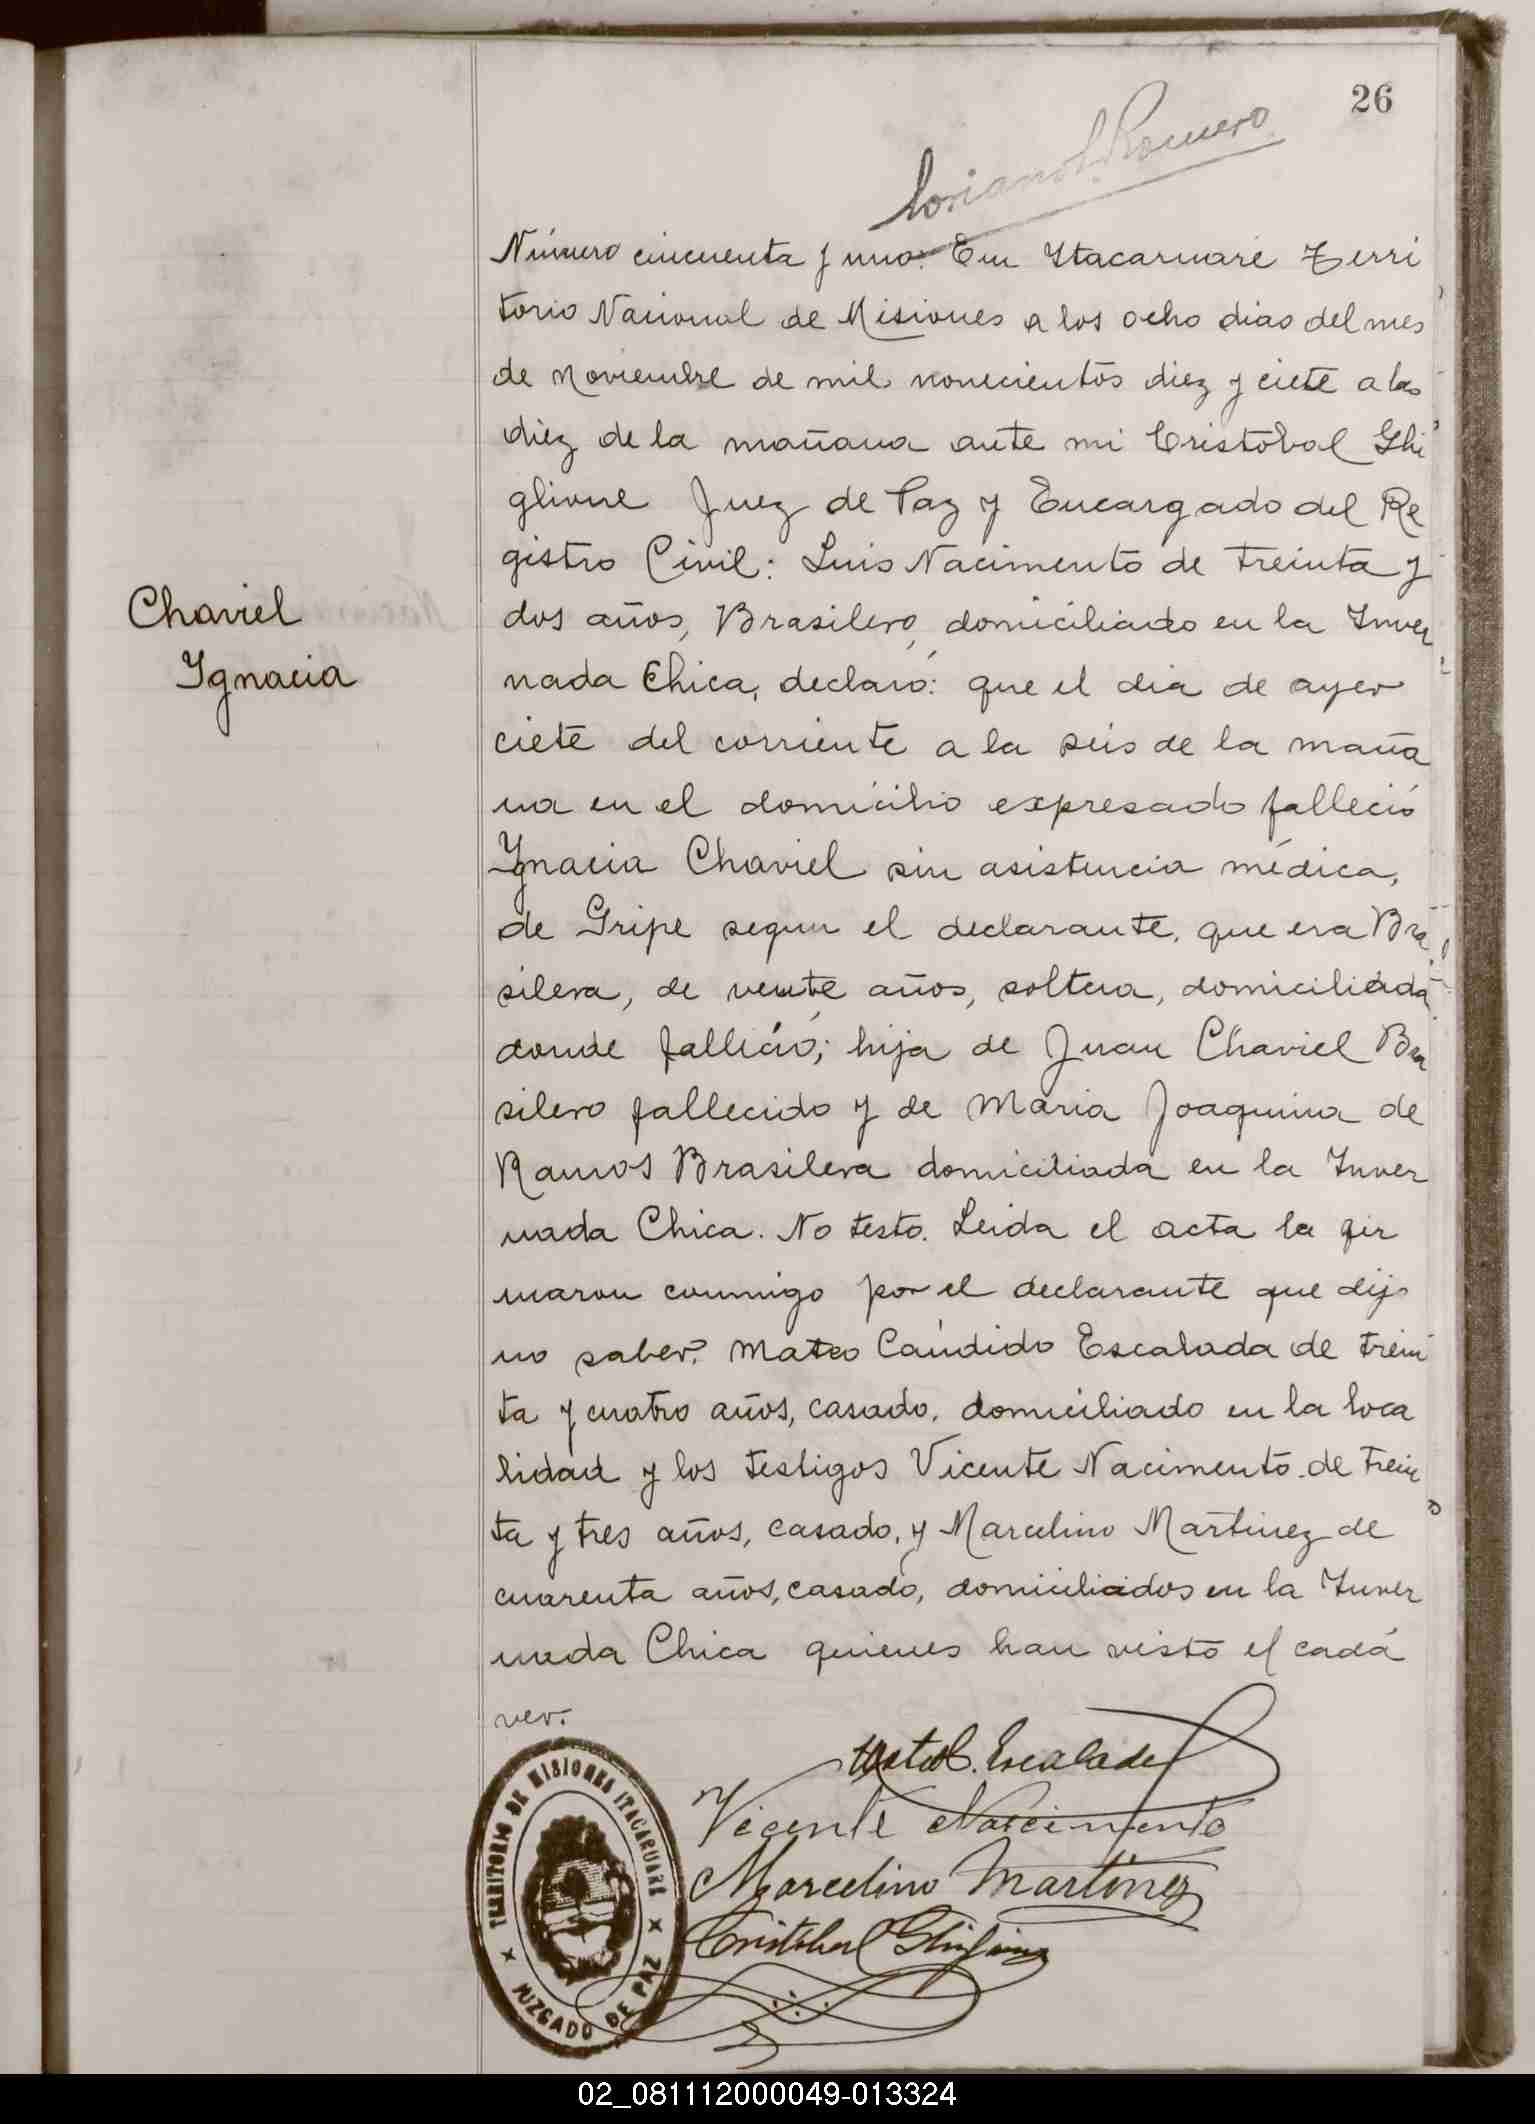 26
Soriano L. Romero
Número cincuenta y uno: Em Ytacaruaré Terri
torio Nacional de Misiones a los ocho dias del mes
de Noviembre de mil nonecientos diez y ciete a las
diez de la mañana ante mi Cristóbal Ghi
glione Juez de Paz y Encargado del Re
gistro Civil: Luis Nacimento de treinta y
dos años, Brasilero, domiciliado en la Inver
Chaviel
Ygnacia
nada Chica, declaró: que el dia de ayer
ciete del corriente a la seis de la maña
na en el domicilio expresado falleció
Ygnacia Chaviel sin asistencia médica,
de Gripe segun el declarante, que era Bra
silera, de veinte años, soltera, domiciliada
donde falleció; hija de Juan Chaviel Bra
silero fallecido y de Maria Joaquina de
Ramos Brasilera domiciliada en la Inver
nada Chica. No testo. Leida el acta la fir
maron conmigo por el declarante que dijo
no saber. Mateo Cándido Escalada de trein
ta y cuatro años, casado, domiciliado en la loca
lidad y los testigos Vicente Nacimento de trein
ta y tres años, casado, y Marcelino Martinez de
cuarenta años, casado, domiciliados en la Inver
nada Chica quienes han visto el cadá
ver.
Mateo C. Escalada
Vicente Nascimento
Marcelino Martinez
Cristobal Ghiglione
TERRITORIO DE MISIONES ITACARUARE
JUZGADO DE PAZ
02_081112000049-013324